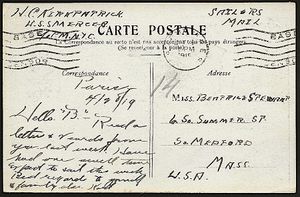 H.C. KIRKPATRICK
U.S.S. MERCER
SAILORS
MAIL
CARTE POSTALE
La Correspondance au recto n'est pas acceptée par tous les pays étrangers.
Correspondance
Adresse
Paris
4/29/19
Hello "B." - Rec'd
letter & cards from
you last week. Have
had one swell time
Expect to sail this week
Best regards to yourself
& family
14
MISS. BEATRICE
60 SO. SUMMER ST
SO. MEDFORD
MASS.
U.S.A.